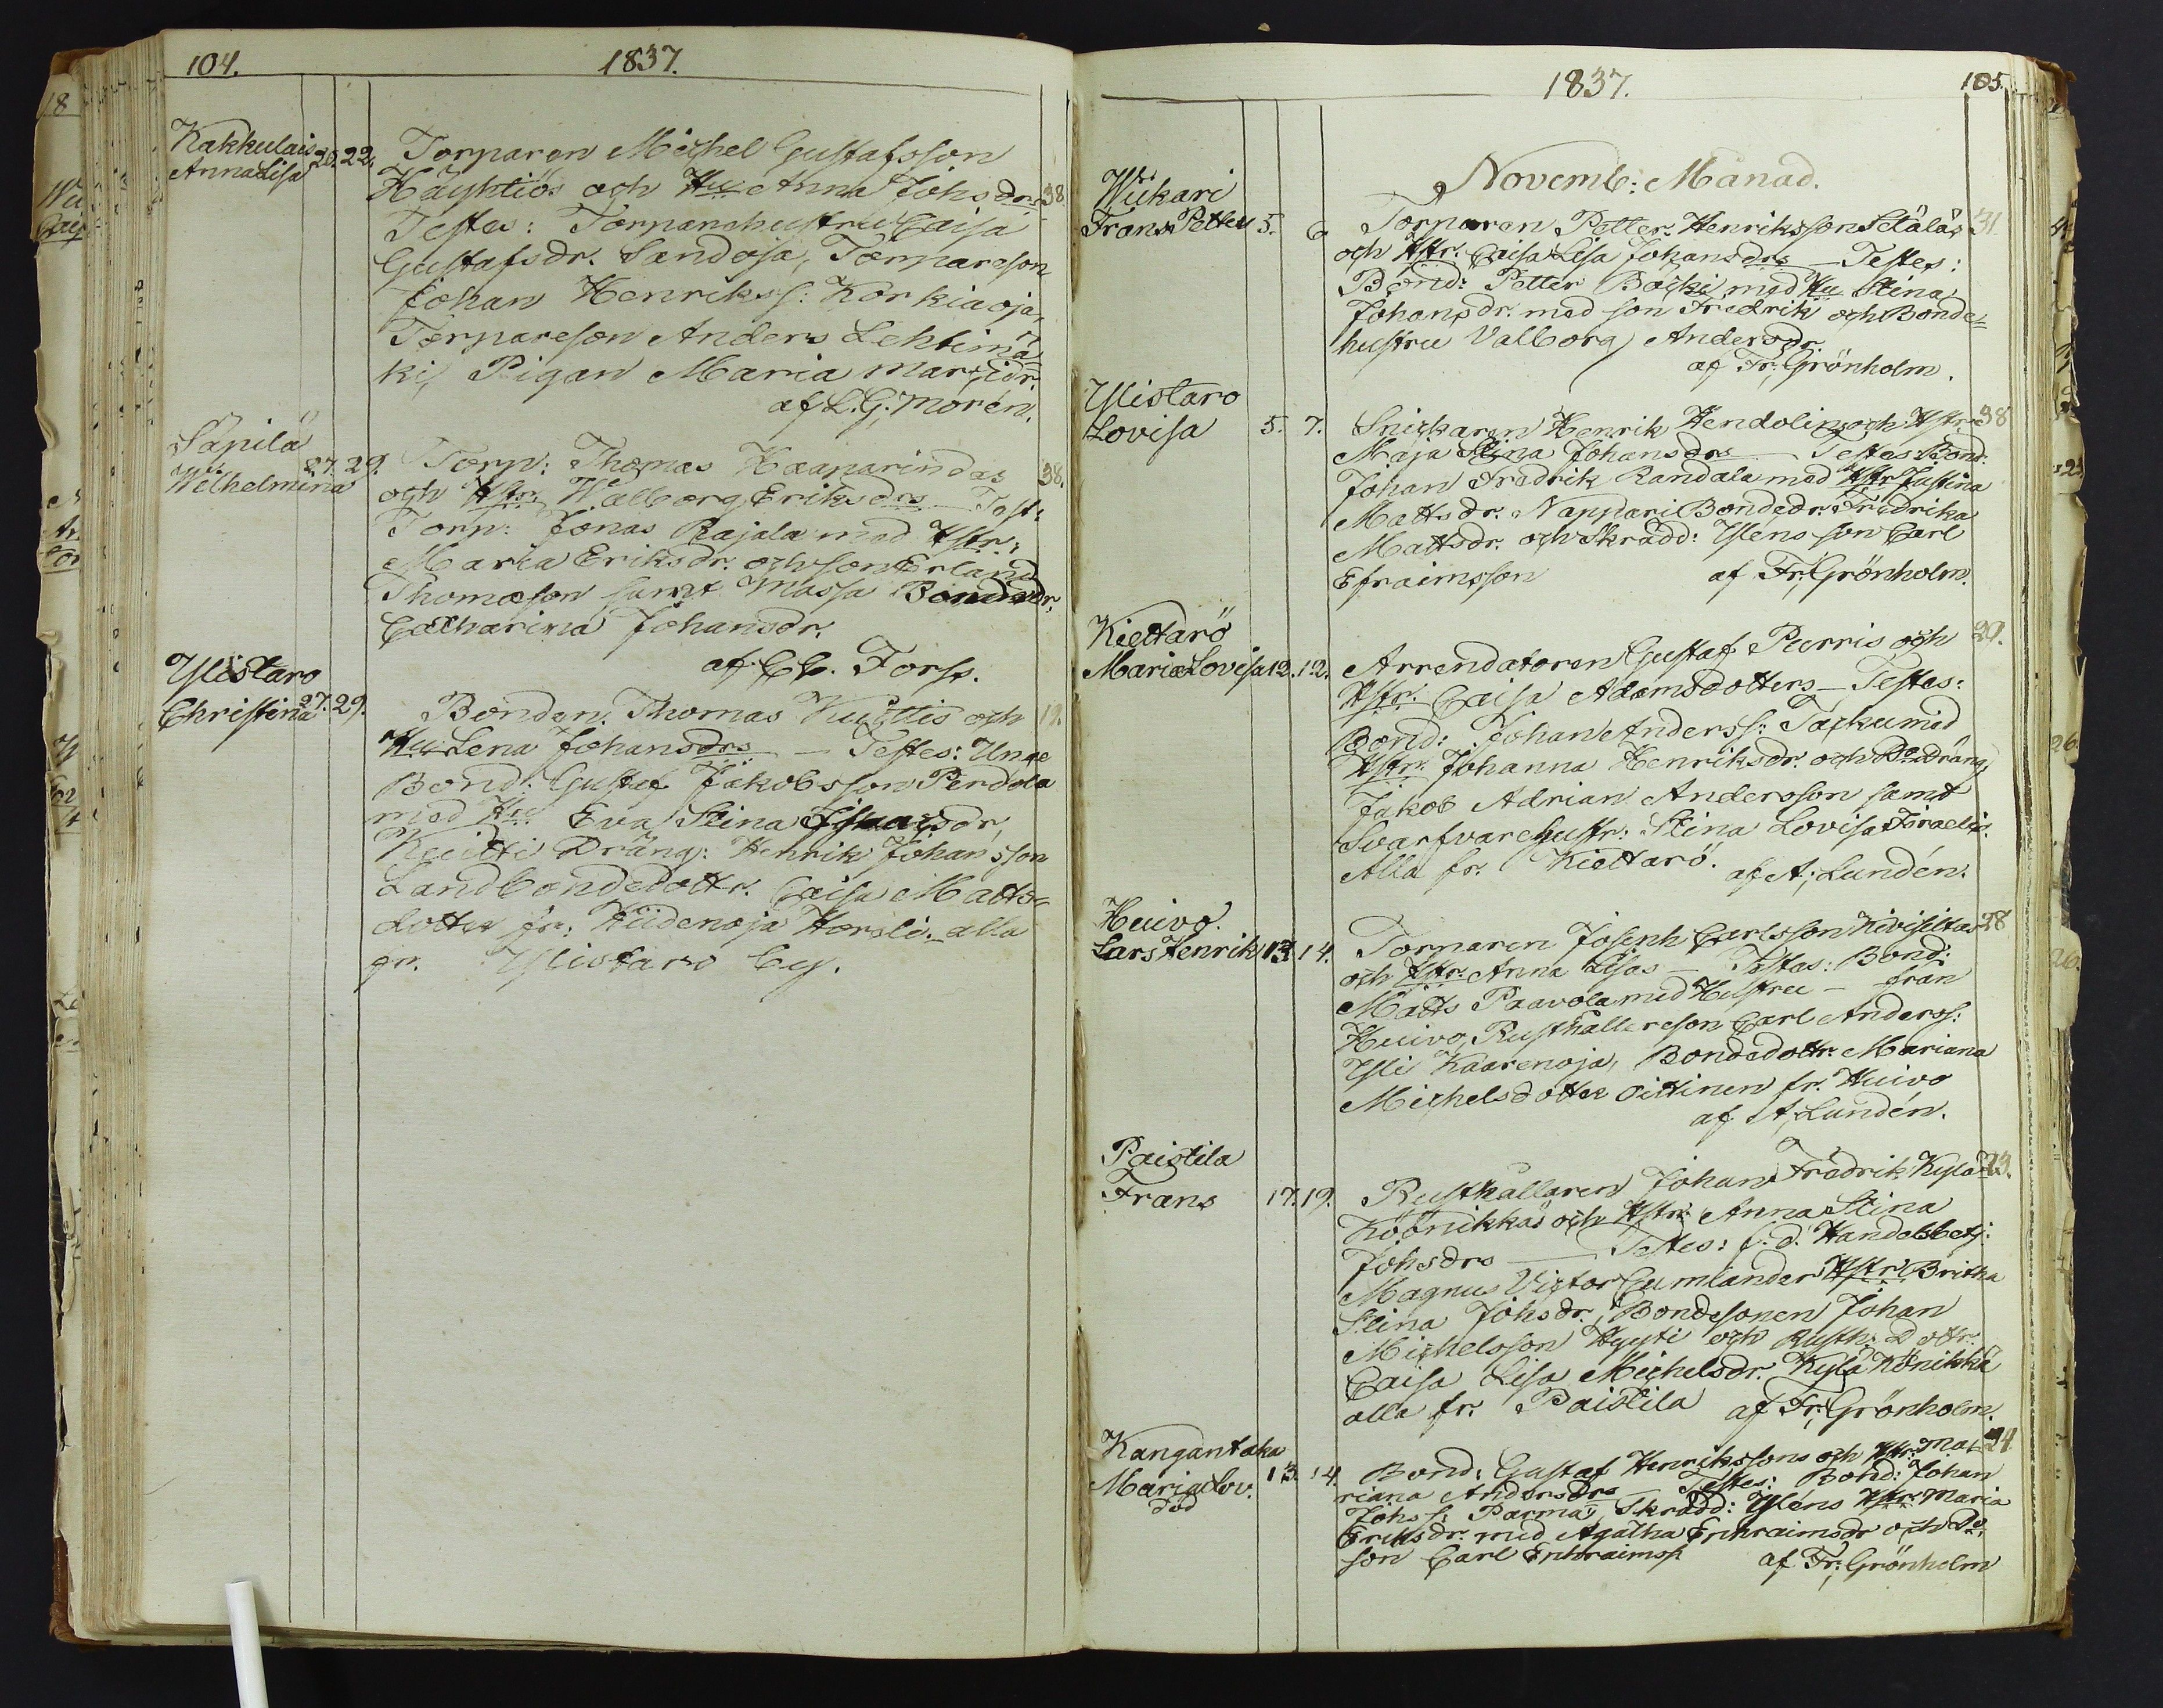 104.
1837.
Kakkulais
Anna Lisa
20. 22.
Torparen Michel Gustafsson
Häyhtiös och Hu Anna Johsdrs 38.
Testes: Torparehustru Caisa
Gustafsdr. Sandoja, Torpareson
Johan Henrikss: Korkiaoja,
Torpareson Anders Lehtimä
ki, Pigan Maria Mart:dr.
af L. G. Morén.
Säpilä
Wilhelmina
27. 29.
Torp: Thomas Haaparindas 38.
och Hstr. Walborg Eriksdrs Test:
Torp: Jonas Rajala med Hstr:
Maria Eriksdr. och son Erland
Thomæson samt Massa Bondedr.
Catharina Johansdr.
af C C. Forss.
Ylistaro
Christina
27. 29.
Bonden Thomas Kuittis och 19.
Hu Lena Johansdrs Testes: Unge
Bond: Gustaf Jakobsson Perdola
med Hu Eva Stina Isaacsdr,
Kuitti Dräng: Henrik Johansson
Landbondedottr. Caisa Matts-
dotter fr. Hiidenoja Horsli. alla
fr. Ylistaro by.
1837.
105.
Novemb: Månad.
Wiikari
Frans Petter
5. 6
Torparen Petter Henriksson Setäläs 31.
och Hstr. Caisa Lisa Johansdrs Testes:
Bond: Petter Bäcki med Hu Stina
Johansdr. med son Fredrik och Bonde-
hustru Valborg Andersdr.
af Fr. Grönholm.
Ylistaro
Lovisa
5. 7.
Snickaren Henrik Hendolin och Hstr. 38
Maja Stina Johansdrs Testes Bond:
Johan Fradrik Randala med Hstr. Justina
Mattsdr. Nappari Bondedr. Fredrika
Mattsdr. och Skrädd: Yléns son Carl
Efraimsson af Fr. Grönholm.
Kiettarö
Maria Lovisa
12. 12.
Arrendatoren Gustaf Purris och 29.
Hstr. Caisa Adamsdotters Testes:
Bond: Johan Anderss: Tacku med
Hstr. Johanna Henriksdr. och Do Dräng
Jakob Adrian Andersson samt
Svarfvarehustr: Stina Lovisa Israelsd.
Alla fr. Kiettarö. af A. Lundén.
Huivo.
Lars Henrik
13 14.
Torparen Joseph Carlsson Kivisiltas 28
och Hstr. Anna Lisas Testes: Bond:
Matts Paavola med Hustru från
Huivo, Rusthållareson Carl Anderss:
Yli Kaarenoja, Bondedottr. Mariana
Michelsdotter Oittinen fr. Huivo
af A. Lundén.
Paistila
Frans
17. 19.
Rusthållaren Johan Fradrik Kylä 23.
Köönikkäs och Hstr. Anna Stina
Johsdrs Testes: f. d. Handelsbetj:
Magnus Victor Gumlander Hstr. Britha
Stina Johsdr., Bondesonen Johan
Michelsson Hyyti och Rusth. Dottr.
Caisa Lisa Michelsdr. Kylä Könikkä
alla fr. Paistila af Fr. Grönholm.
Kangantaka
Maria Lov.
Död
13. 14.
Bond: Gustaf Henrikssons och Hstr. Ma- 24.
riana Andersdrs Testes: Bond: Johan
Johss: Parma, Skrädd: Yléns Hstr. Maria
Eriksdr. med Agatha Ephraimsdr och Do
son Carl Ephraimss af Fr. Grönholm